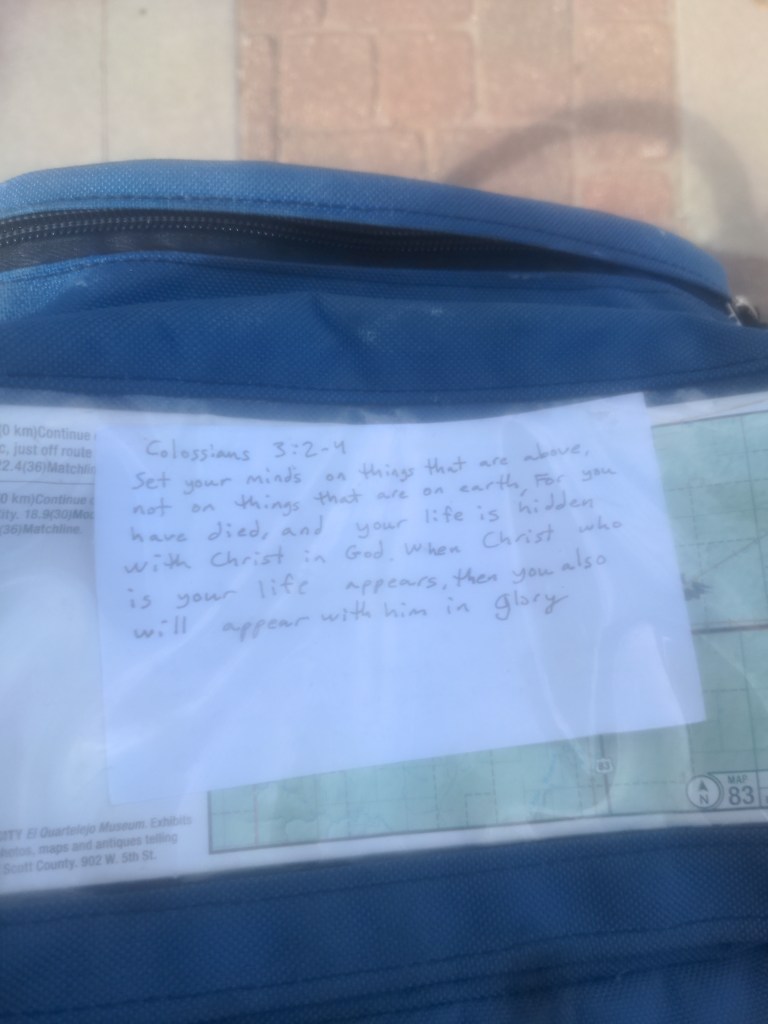 (0 km)Continue
c, just off route
22.4(36)Matchli
0 km)Continue
ity. 18.9(30)
(36)Matchline.
Colossians 3:2-4
Set your minds on things that are above,
not on things that are on earth, For you
have died, and your life is hidden
with Christ in God. When Christ who
is your life appears, then you also
will appear with him in glory
83
N
MAP
83
ITY El Quartelejo Museum. Exhibits
hotos, maps and antiques telling
Scott County. 902 W. 5th St.